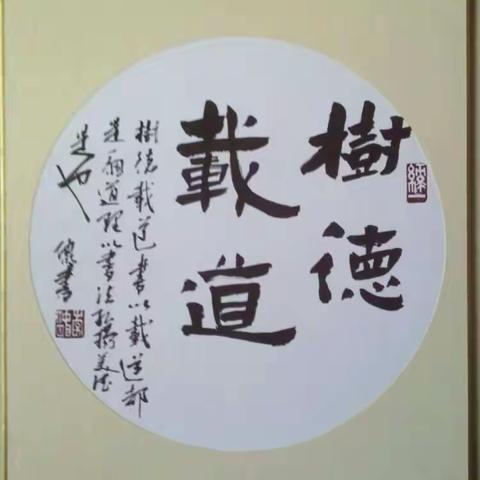 樹德
載道
樹德載道書以載道都
是兩道理以書法弘揚美德
是也
書